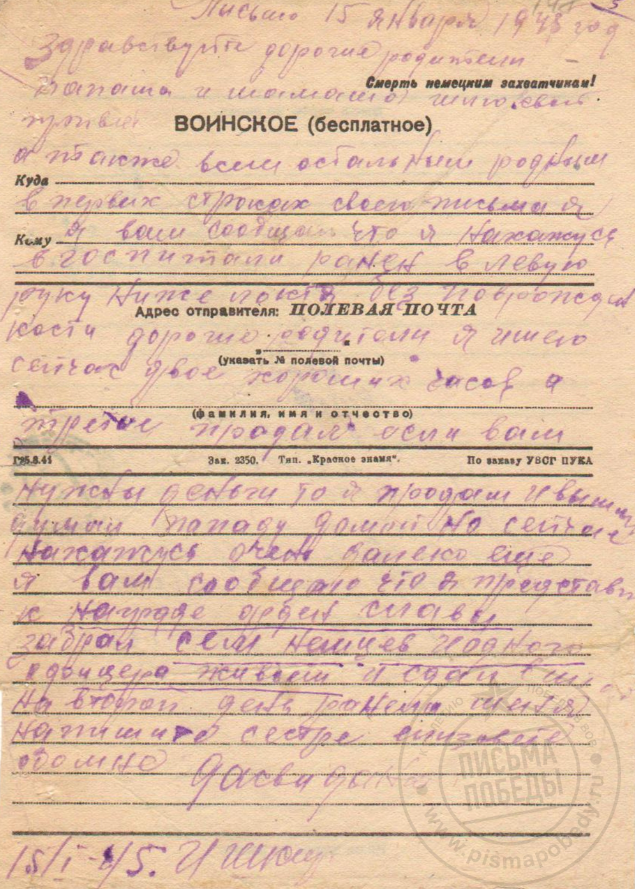 Письмо 15 января 1945 год
Здравствуйте дорогие родители
Смерть немецким захватчикам!
Папаша и мамаша шлю свой
привет
ВОИНСКОЕ (бесплатное)
а также всем остальным родным
Куда
в первых строках своего письма я
Кому
я вам сообщаю что я нахажусь
в госпитали ранен в левую
руку ниже локтя без
Адрес отправителя: ПОЛЕВАЯ ПОЧТА
кости дорогие родители я имею
(указать № полевой почты)
сейчас двое хороших часов а
(фамилия, имя и отчество)
третие продал если вам
Г95.8.41 Зак. 2350. Тип. „Красное знамя“. По заказу УВСГ ПУКА
нужны деньги то я продам и
домой но сейчас
нахажусь очень далеко еще
я вам сообщаю что я представлен
к награде орден славы
забрал семь немцев и одного
офицера живьем и сдал в
на второй день ранели меня
напишите сестре
обо мне дасвидания
15/I-45.
ПИСЬМА ПОБЕДЫ
www.pismapobedy.ru